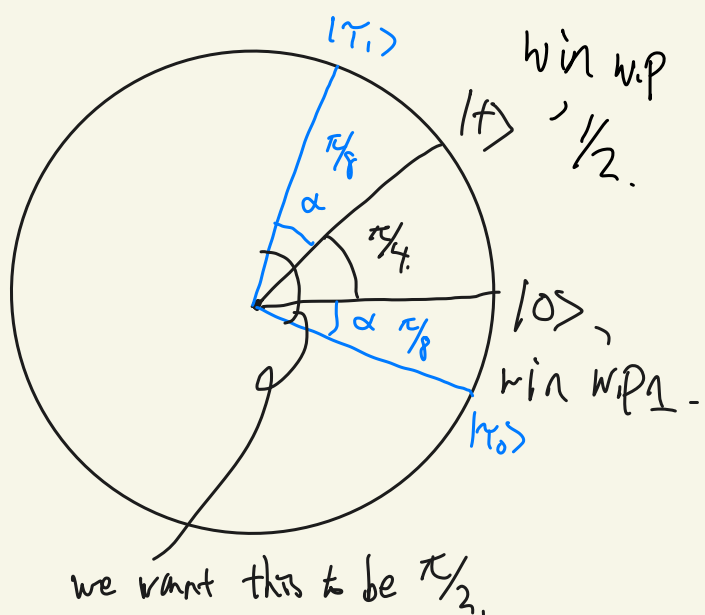 |τ₁⟩
win w.p
|+⟩, 1/2.
π/8
α
π/4.
|0⟩,
α π/8
win w.p 1.
|τ₀⟩
we want this to be π/2.